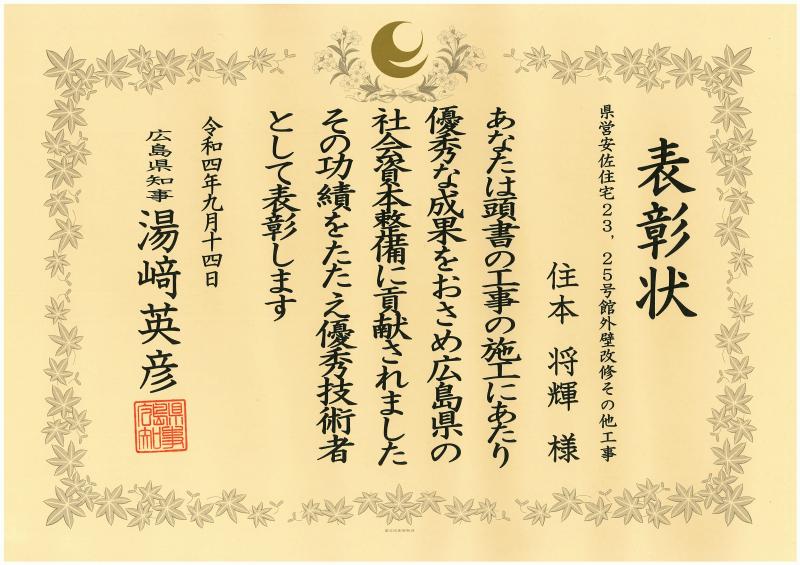 表彰状
県営安佐住宅23，25号館外壁改修その他工事
住本 将輝 様
あなたは頭書の工事の施工にあたり
優秀な成果をおさめ広島県の
社会資本整備に貢献されました
その功績をたたえ優秀技術者
として表彰します
令和四年九月十四日
広島県知事 湯﨑英彦